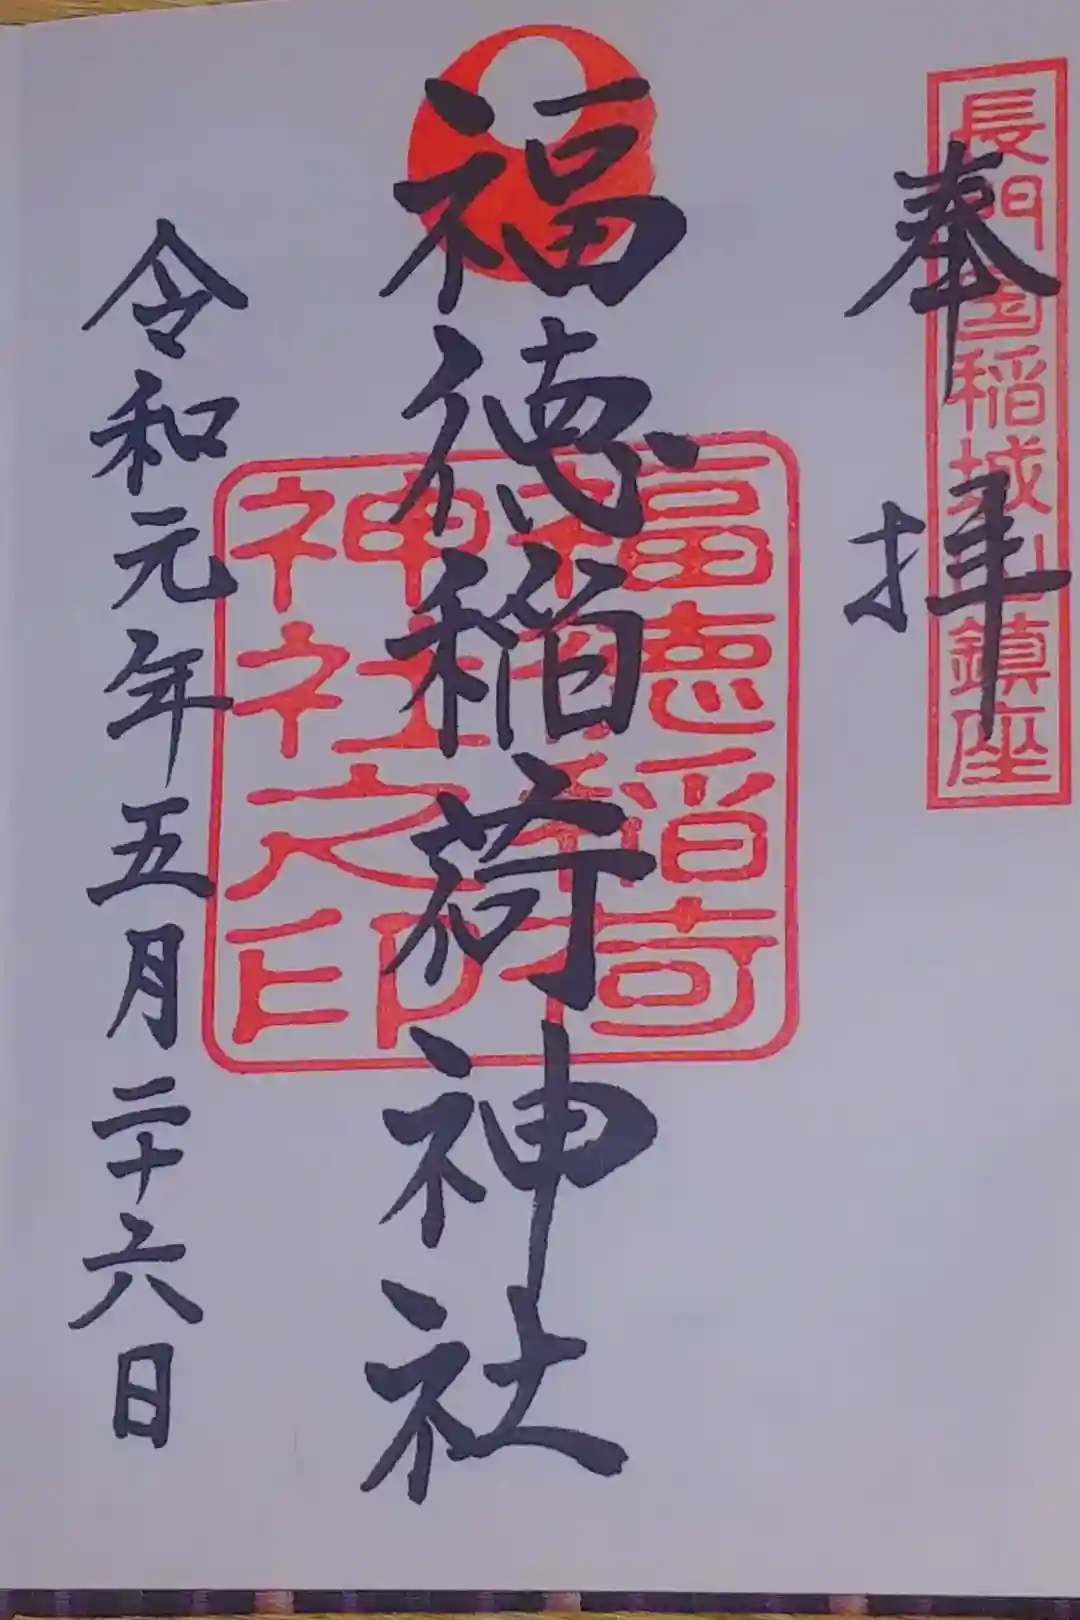 長門国稲城山鎮座
奉拝
福徳稲荷神社
福徳稲荷
神社之印
令和元年五月二十六日